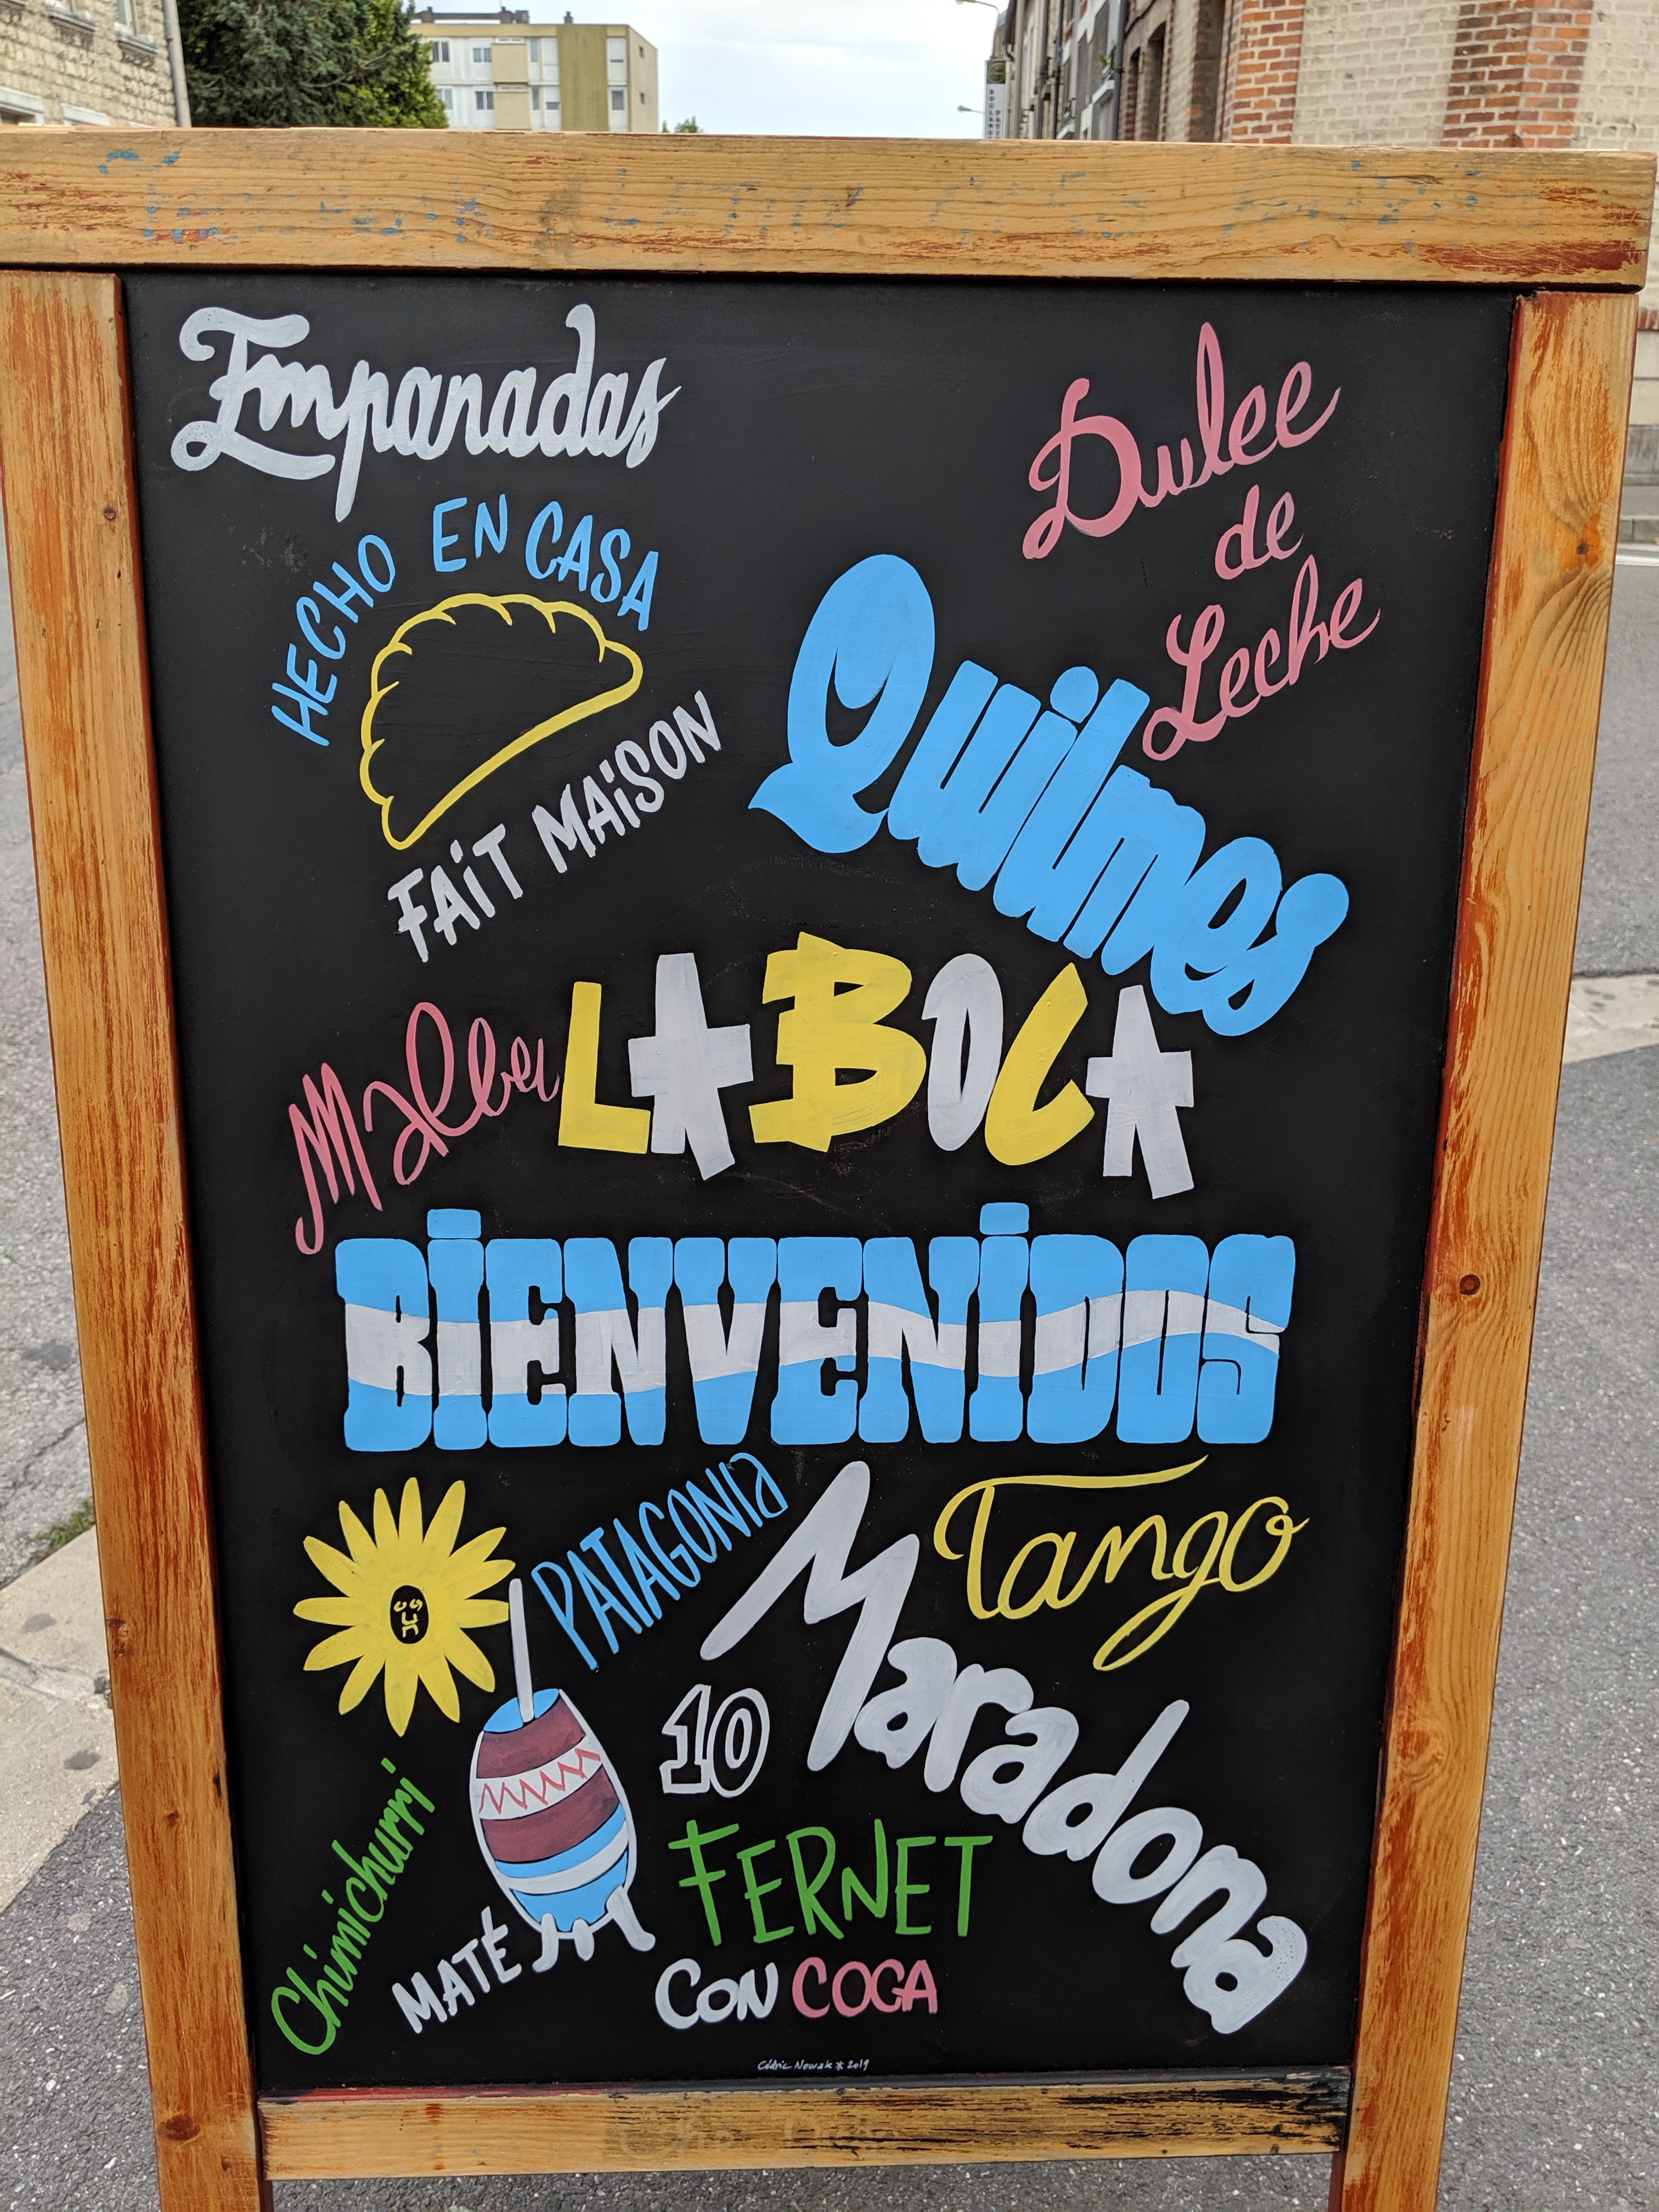 Empanadas
Dulce
de
Leche
HECHO EN CASA
FAiT MAiSON
Quilmes
Malbec
LA BOCA
BiENVENiDOS
PATAGONIa
Tango
Maradona
10
Chimichurri
MATÉ
FERNET
CON COCA
Cédric Nowak * 2019